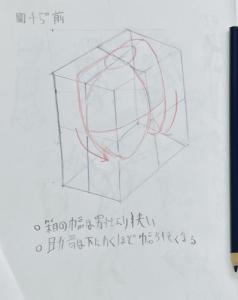 前
○箱の幅は男性より狭い
○肋骨は下に行くほど幅が狭くなる